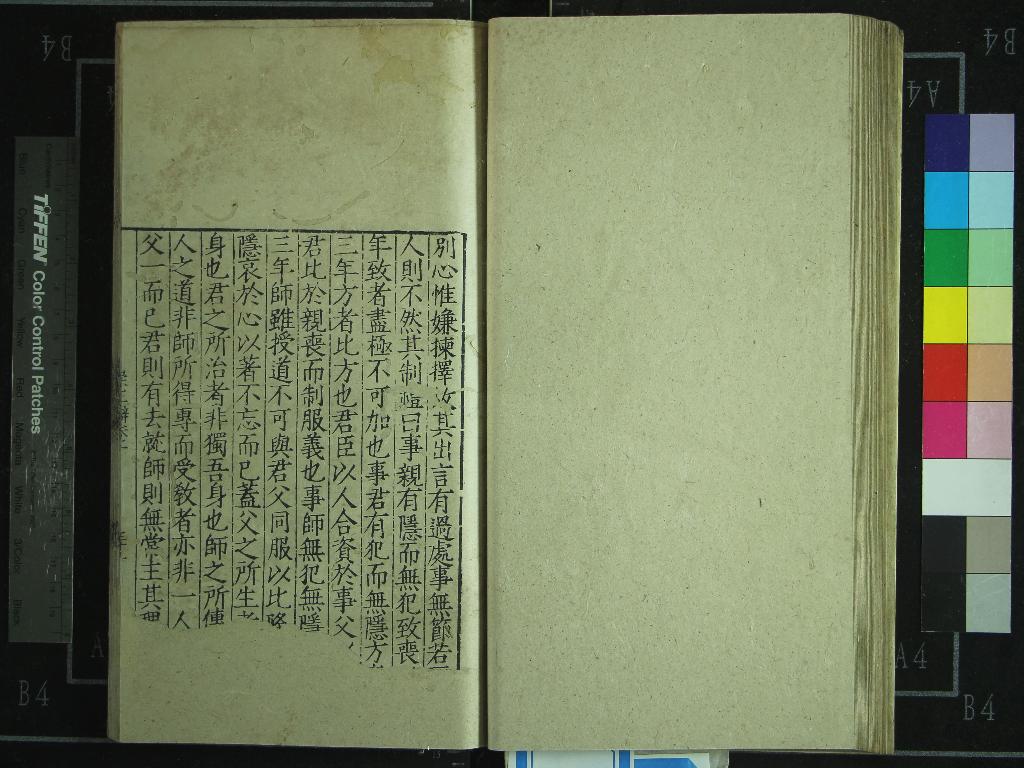 別心惟嫌揀擇故其出言有過處事無節若
人則不然其制禮曰事親有隱而無犯致喪
年致者盡極不可加也事君有犯而無隱方
三年方者比方也君臣以人合資於事父
君比於親喪而制服義也事師無犯無隱
三年師雖授道不可與君父同服以比
隱哀於心以著不忘而已蓋父之所生者
身也君之所治者非獨吾身也師之所傳
人之道非師所得專而受敎者亦非一人
父一而已君則有去就師則無常主其
TIFFEN Color Control Patches
Blue Cyan Green Yellow Red Magenta White 3/Color Black
B4
B4
B4
B4
A4
A4
A